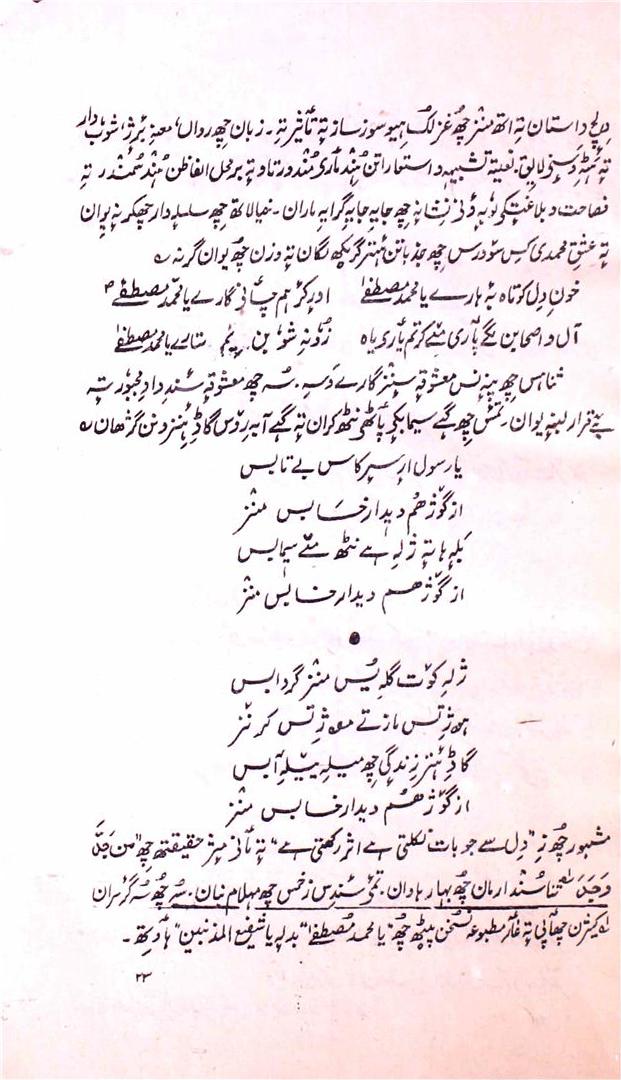 دِلچ داستان تہٕ اتھ منٛز چھُ غزلُک ہیو سوز ساز تہٕ تأثیر تہِ۔ زبان چھِ رواں، معنہٕ بژژ، شوب دار
تہٕ ہتھٕ دٔستی لایق۔ نعتیہ تشبیہہ و استعاراتن ہُند أری مُندورتاو تہٕ برمحل الفاظن ہُنٛد سمندر تہٕ
فصاحت و بلاغتٕکۍ لوٗبہٕ وٕنۍ نشانہٕ چھِ جایہِ جایہِ گرایہِ ماران۔ خیالاتھ چھِ سلسلہٕ دار چھکرنہٕ یوان
تہٕ عشقِ محمدی کِس سودرس چھِ جذباتن ہنٛز گریکھ لگان تہٕ وزن چھُ یوان گرنہٕ ؎
خونِ دِل کوتاہ بہٕ ہارے یا محمد مصطفےٰؐ اور کر ہم چانۍ گارے یا محمد مصطفےٰؐ
آل و اصحابن گے یأری مےٚ کرتم یأری یاہ زُو نہٕ شوٗبن ریتم ستارے یا محمد مصطفےٰ
ثناہس چھِ پننِس معشوقہٕ سٕنٛز گارے دٔسہِ۔ سُہ چھُ معشوقہٕ سٕندِ دادِ مجبور تہٕ
بےٚ قرار لبنہٕ یوان۔ تمٔس چھِ گے سیمابکۍ پأٹھۍ نٹھ کران تہٕ گہے آبہٕ روٗس گاڈِ ہٕنٛز دٔنن گژھان ؎
یا رسول از سرکاس بے تابس
از گوژھم دیدار خابس منٛز
بلہٕ ہا تہٕ ژلہِ ہے نٹھ مےٚ سیمابس
از گوژھم دیدار خابس منٛز
ژلہِ کوٚت گلہِ یُس منٛز گردابس
موژتس ماز تے موژتس کرنٛز
گاڈِ ہٕنٛز زندگی چھِ میلہِ بیٚلہِ آبس
از گوژھم دیدار خابس منٛز
مشہور چھُ زِ "دِل سے جو بات نکلتی ہے اثر رکھتی ہے" تہٕ تأنۍ میژ حقیقتھ چھِ "من جَدَّ
وَجَدَ" ثنا سُند ارمان چھُ بہار ہاوان۔ تٔمۍ سٕندِس زخمس چھُ مہلام بنان۔ سُہ چھُ سُہ گژمران
لہٕ کینٛژن چھأپۍ تہٕ غأر مطبوعہ نسخن پیٹھ چھُ "یا محمد مصطفےٰ" بدلہٕ یا شفیع المذنبین" ہاوِتھ۔
۲۳